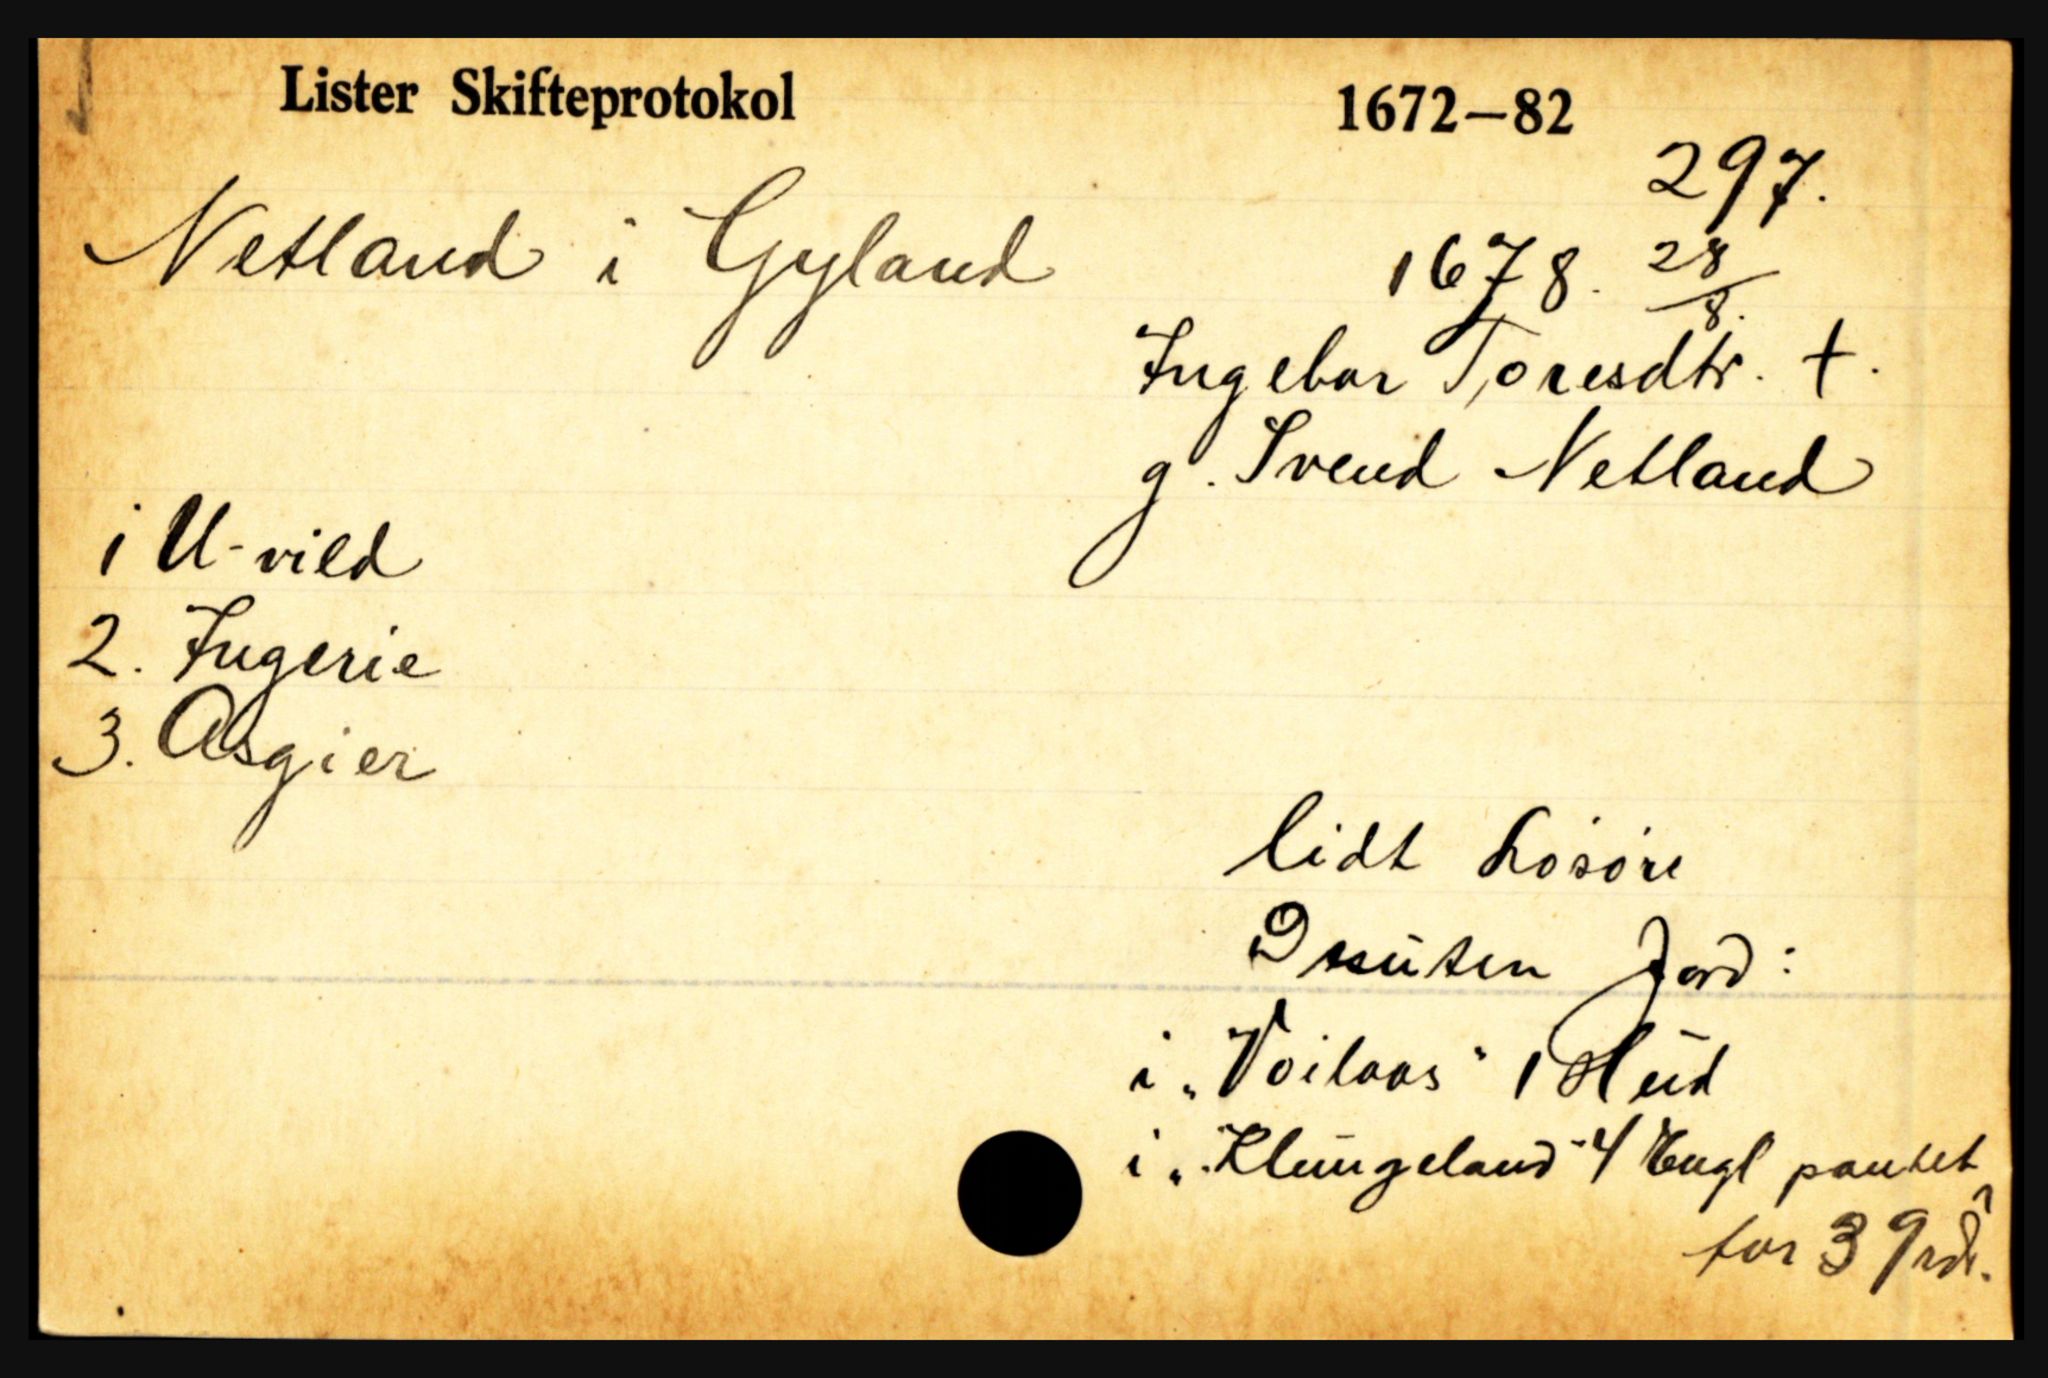 Lister Skifteprotokol 1672–82
297.
Netland i Gyland 1678. 28/8.
Ingebor Toresdtr. †.
g. Svend Netland
1 U-vild
2. Ingerie
3. Asgier
lidt Løsøre
Jord:
i „Voilaas" 1 Hŭd
i „Klŭngeland" 4 Engl pantet
for 39 rdr.